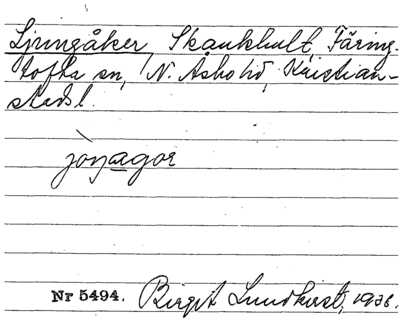 Ljungåker, Skankhult, Färing-
tofta sn, N. Åsbo hd, Kristian-
stads l.
jöŋagor
Nr 5494. Birgit Lundkvist, 1936.